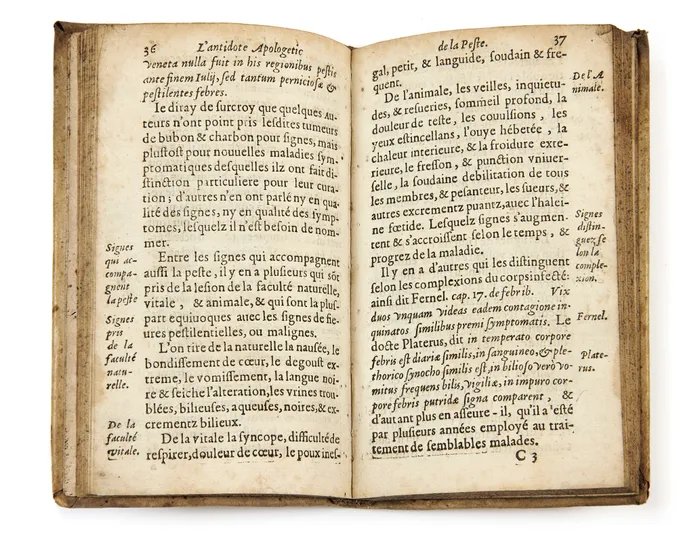 36 L'antidote Apologetic
veneta nulla fuit in his regionibus pestis
ante finem Iulij, sed tantum perniciosæ &
pestilentes febres.
Ie diray de surcroy que quelques Au-
teurs n'ont point pris lesdites tumeurs
de bubon & charbon pour signes, mais
plustost pour nouuelles maladies sym-
ptomatiques desquelles ilz ont fait di-
stinction particuliere pour leur cura-
tion; d'autres n'en ont parlé ny en qua-
lité des signes, ny en qualité des symp-
tomes, lesquelz il n'est besoin de nom-
mer.
Signes qui ac-compa-gnent la peste
Entre les signes qui accompagnent
aussi la peste, il y en a plusieurs qui sõt
pris de la lesion de la faculté naturelle,
vitale, & animale, & qui sont la plus-
part equiuoques auec les signes de fie-
ures pestilentielles, ou malignes.
Signes pris de la faculté natu-relle.
L'on tire de la naturelle la nausée, le
bondissement de cœur, le degoust ex-
treme, le vomissement, la langue noi-
re & seiche l'alteration, les vrines trou-
blées, bilieuses, aqueuses, noires, & ex-
crementz bilieux.
De la faculté vitale.
De la vitale la syncope, difficulté de
respirer, douleur de cœur, le poux ines-
de la Peste. 37
gal, petit, & languide, soudain & fre-
quent.
De l'A nimale.
De l'animale, les veilles, inquietu-
des, & resueries, sommeil profond, la
douleur de teste, les couulsions, les
yeux estincellans, l'ouye hebetée, la
chaleur interieure, & la froidure exte-
rieure, le fresson, & punction vniuer-
selle, la soudaine debilitation de tous
les membres, & pesanteur, les sueurs, &
autres excrementz puantz, auec l'halei-
ne fœtide. Lesquelz signes s'augmen-
tent & s'accroissent selon le temps, &
progrez de la maladie.
Signes distin-guez, se lon la comple-xion.
Il y en a d'autres qui les distinguent
selon les complexions du corps infecté:
ainsi dit Fernel. cap. 17. de febrib. Vix
Fernel.
duos vnquam videas eadem contagione in-
quinatos similibus premi symptomatis. Le
docte Platerus, dit in temperato corpore
Plate-rus.
febris est diariæ similis, in sanguineo, & ple-
thorico synocho similis est, in bilioso verò vo-
mitus frequens bilis, vigiliæ, in impuro cor-
pore febris putridæ signa comparent, &
d'autant plus en asseure-il, qu'il a esté
par plusieurs années employé au trai-
tement de semblables malades.
C 3